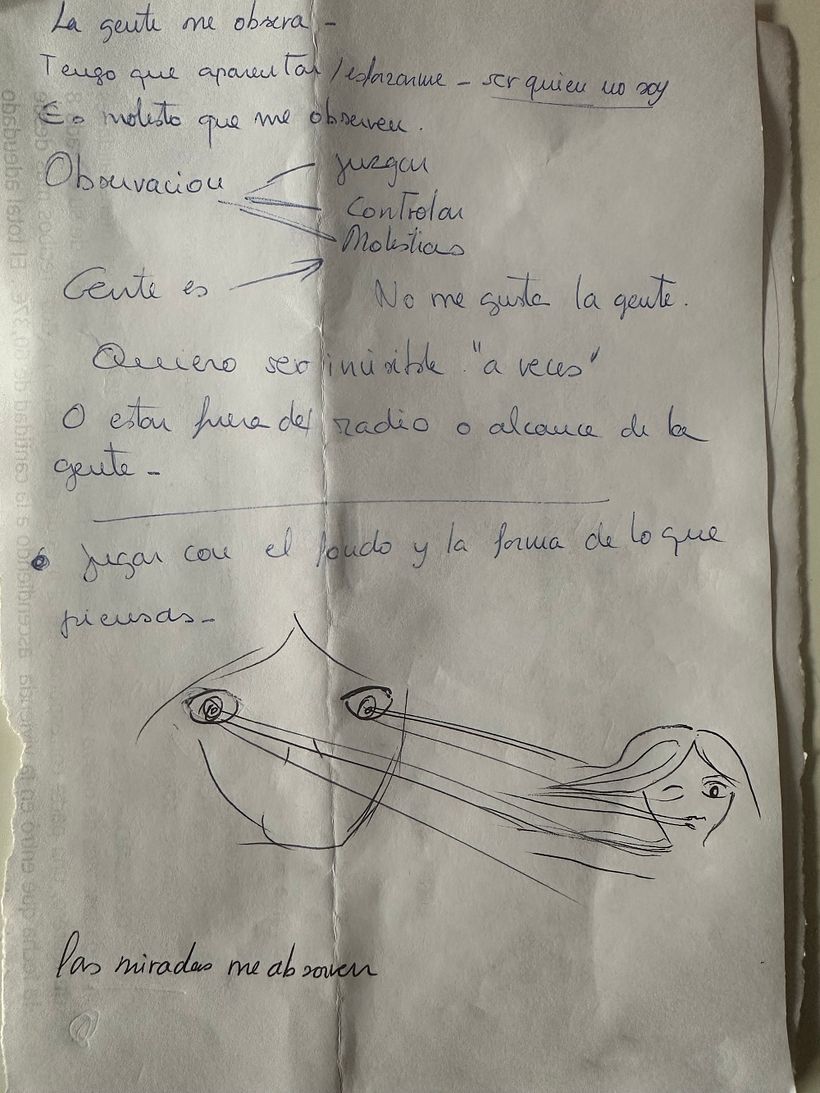 La gente me observa -
Tengo que aparentar / esforzarme - ser quien no soy
Es molesto que me observen.
Observacion
juzgar
Controlar
Molestias
Gente es
No me gusta la gente.
Quiero ser invisible "a veces"
O estar fuera del radio o alcance de la
gente -
• jugar con el fondo y la forma de lo que
piensas -
las miradas me absorven